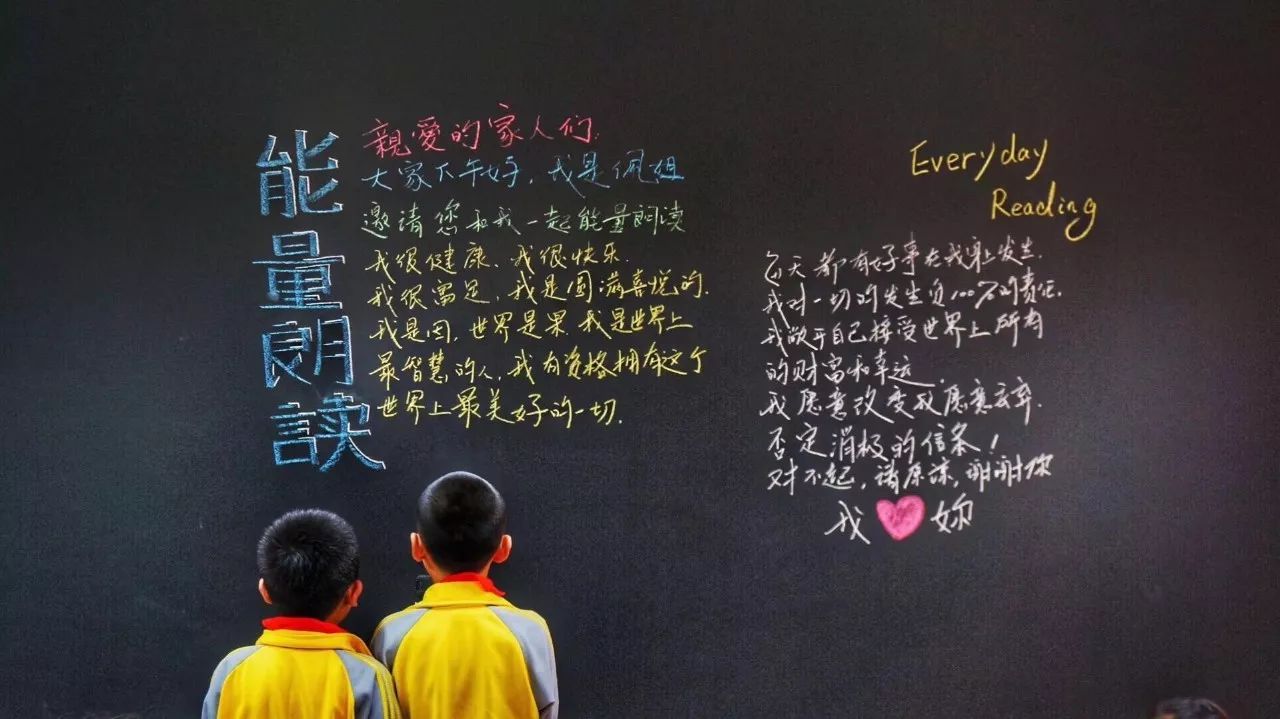 能量朗读
親愛的家人们.
大家下午好，我是佩姐
邀请您和我一起能量朗读
我很健康、我很快乐.
我很富足，我是圆满喜悦的.
我是因，世界是果.我是世界上
最智慧的人，我有资格拥有这个
世界上最美好的一切.
Everyday
Reading
每天都有好事在我身上发生.
我对一切的发生负100%的责任.
我敞开自己接受世界上所有
的财富和幸运.
我愿意改变我愿意去弃.
否定消极的信条！
对不起，请原谅，谢谢你
我 妳